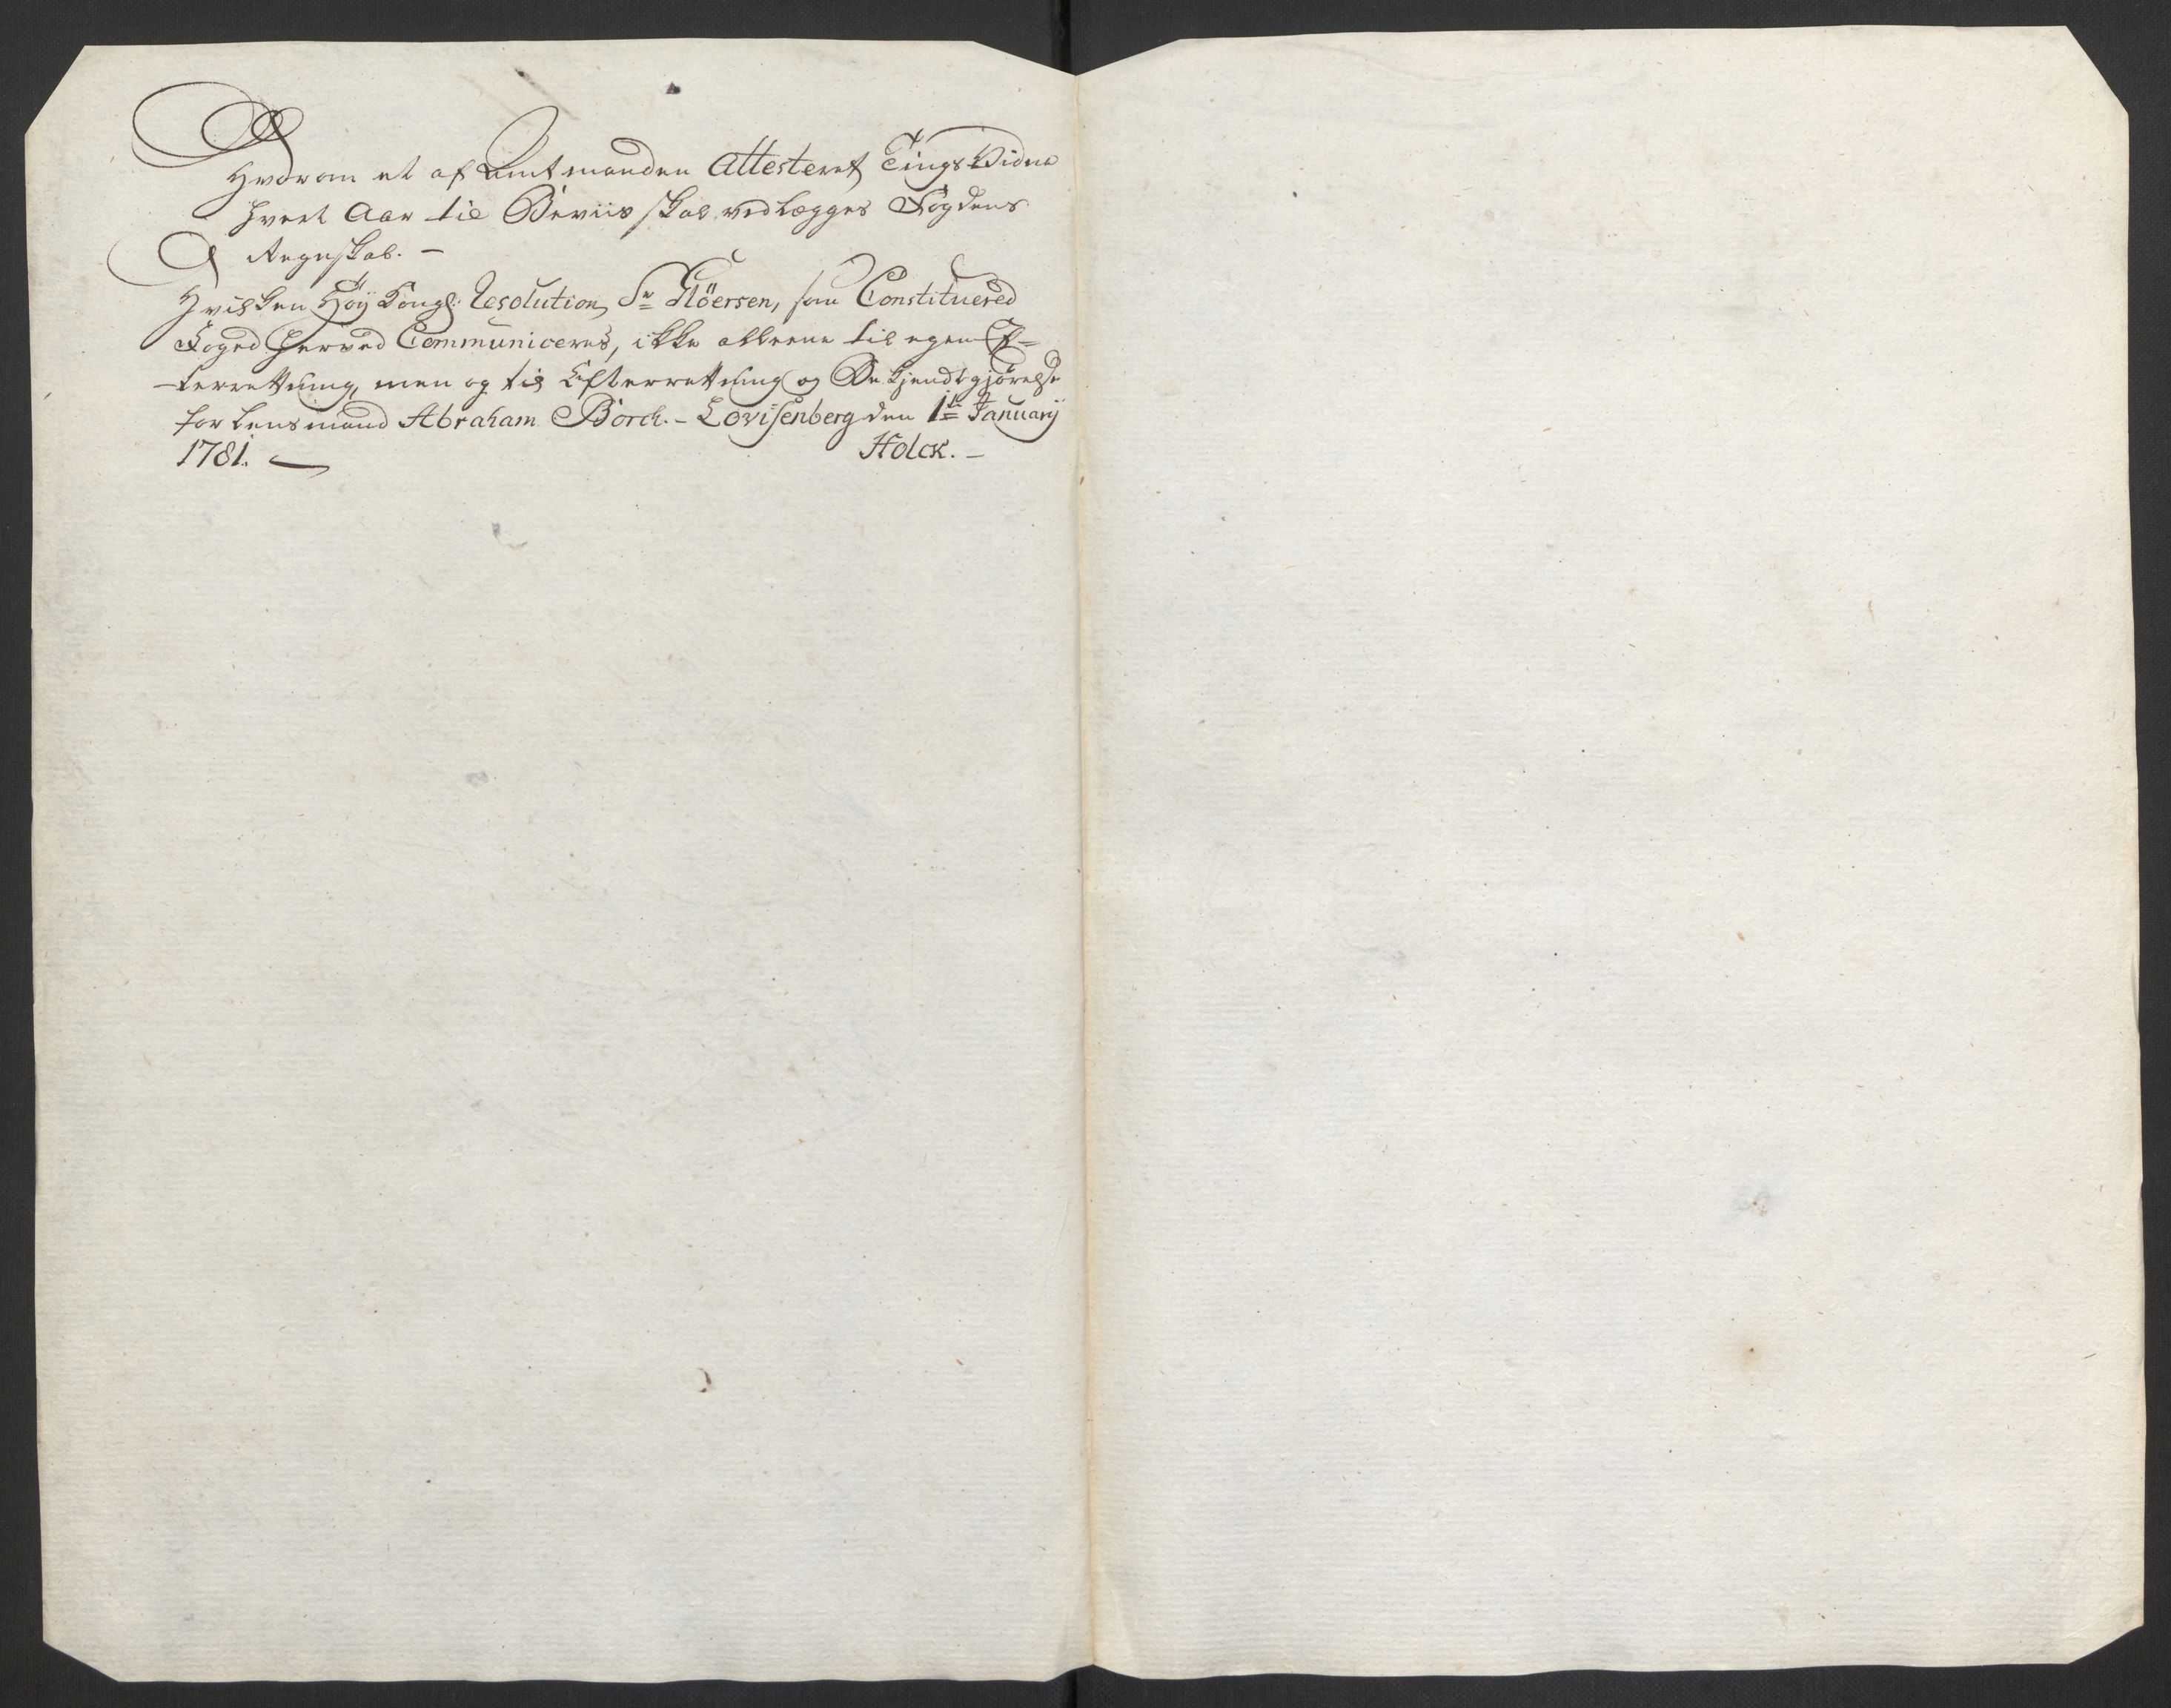 Hvorom et af Amtmanden Attesteret Tings Vidne
hvert Aar til Beviis skal vedlægges Fogdens
Regnskab. –
Hvilken Høÿ Kongl: Resolution Sr Fløersen, som Constituered
Foged herved Communiceres, ikke alleene til egen Ef=
-terrettning, men og til Efterrettning og Bekjendtgjørelse
for Lensmand Abraham Borch. – Lovisenberg den 1te Januarÿ
1781. —
Holck. –